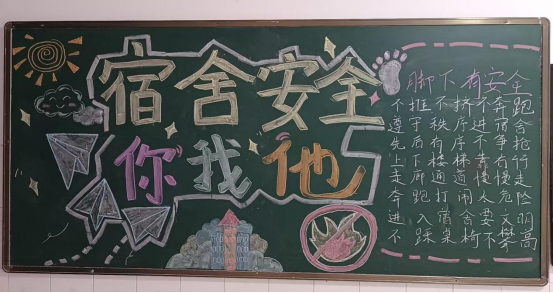 宿舍安全
你我他
脚下有安全
不推不挤不奔跑
遵守秩序进宿舍
先后有序不争抢
上下楼梯靠右行
走廊通道慢慢走
奔跑打闹太危险
进入宿舍要文明
不踩桌椅不攀高